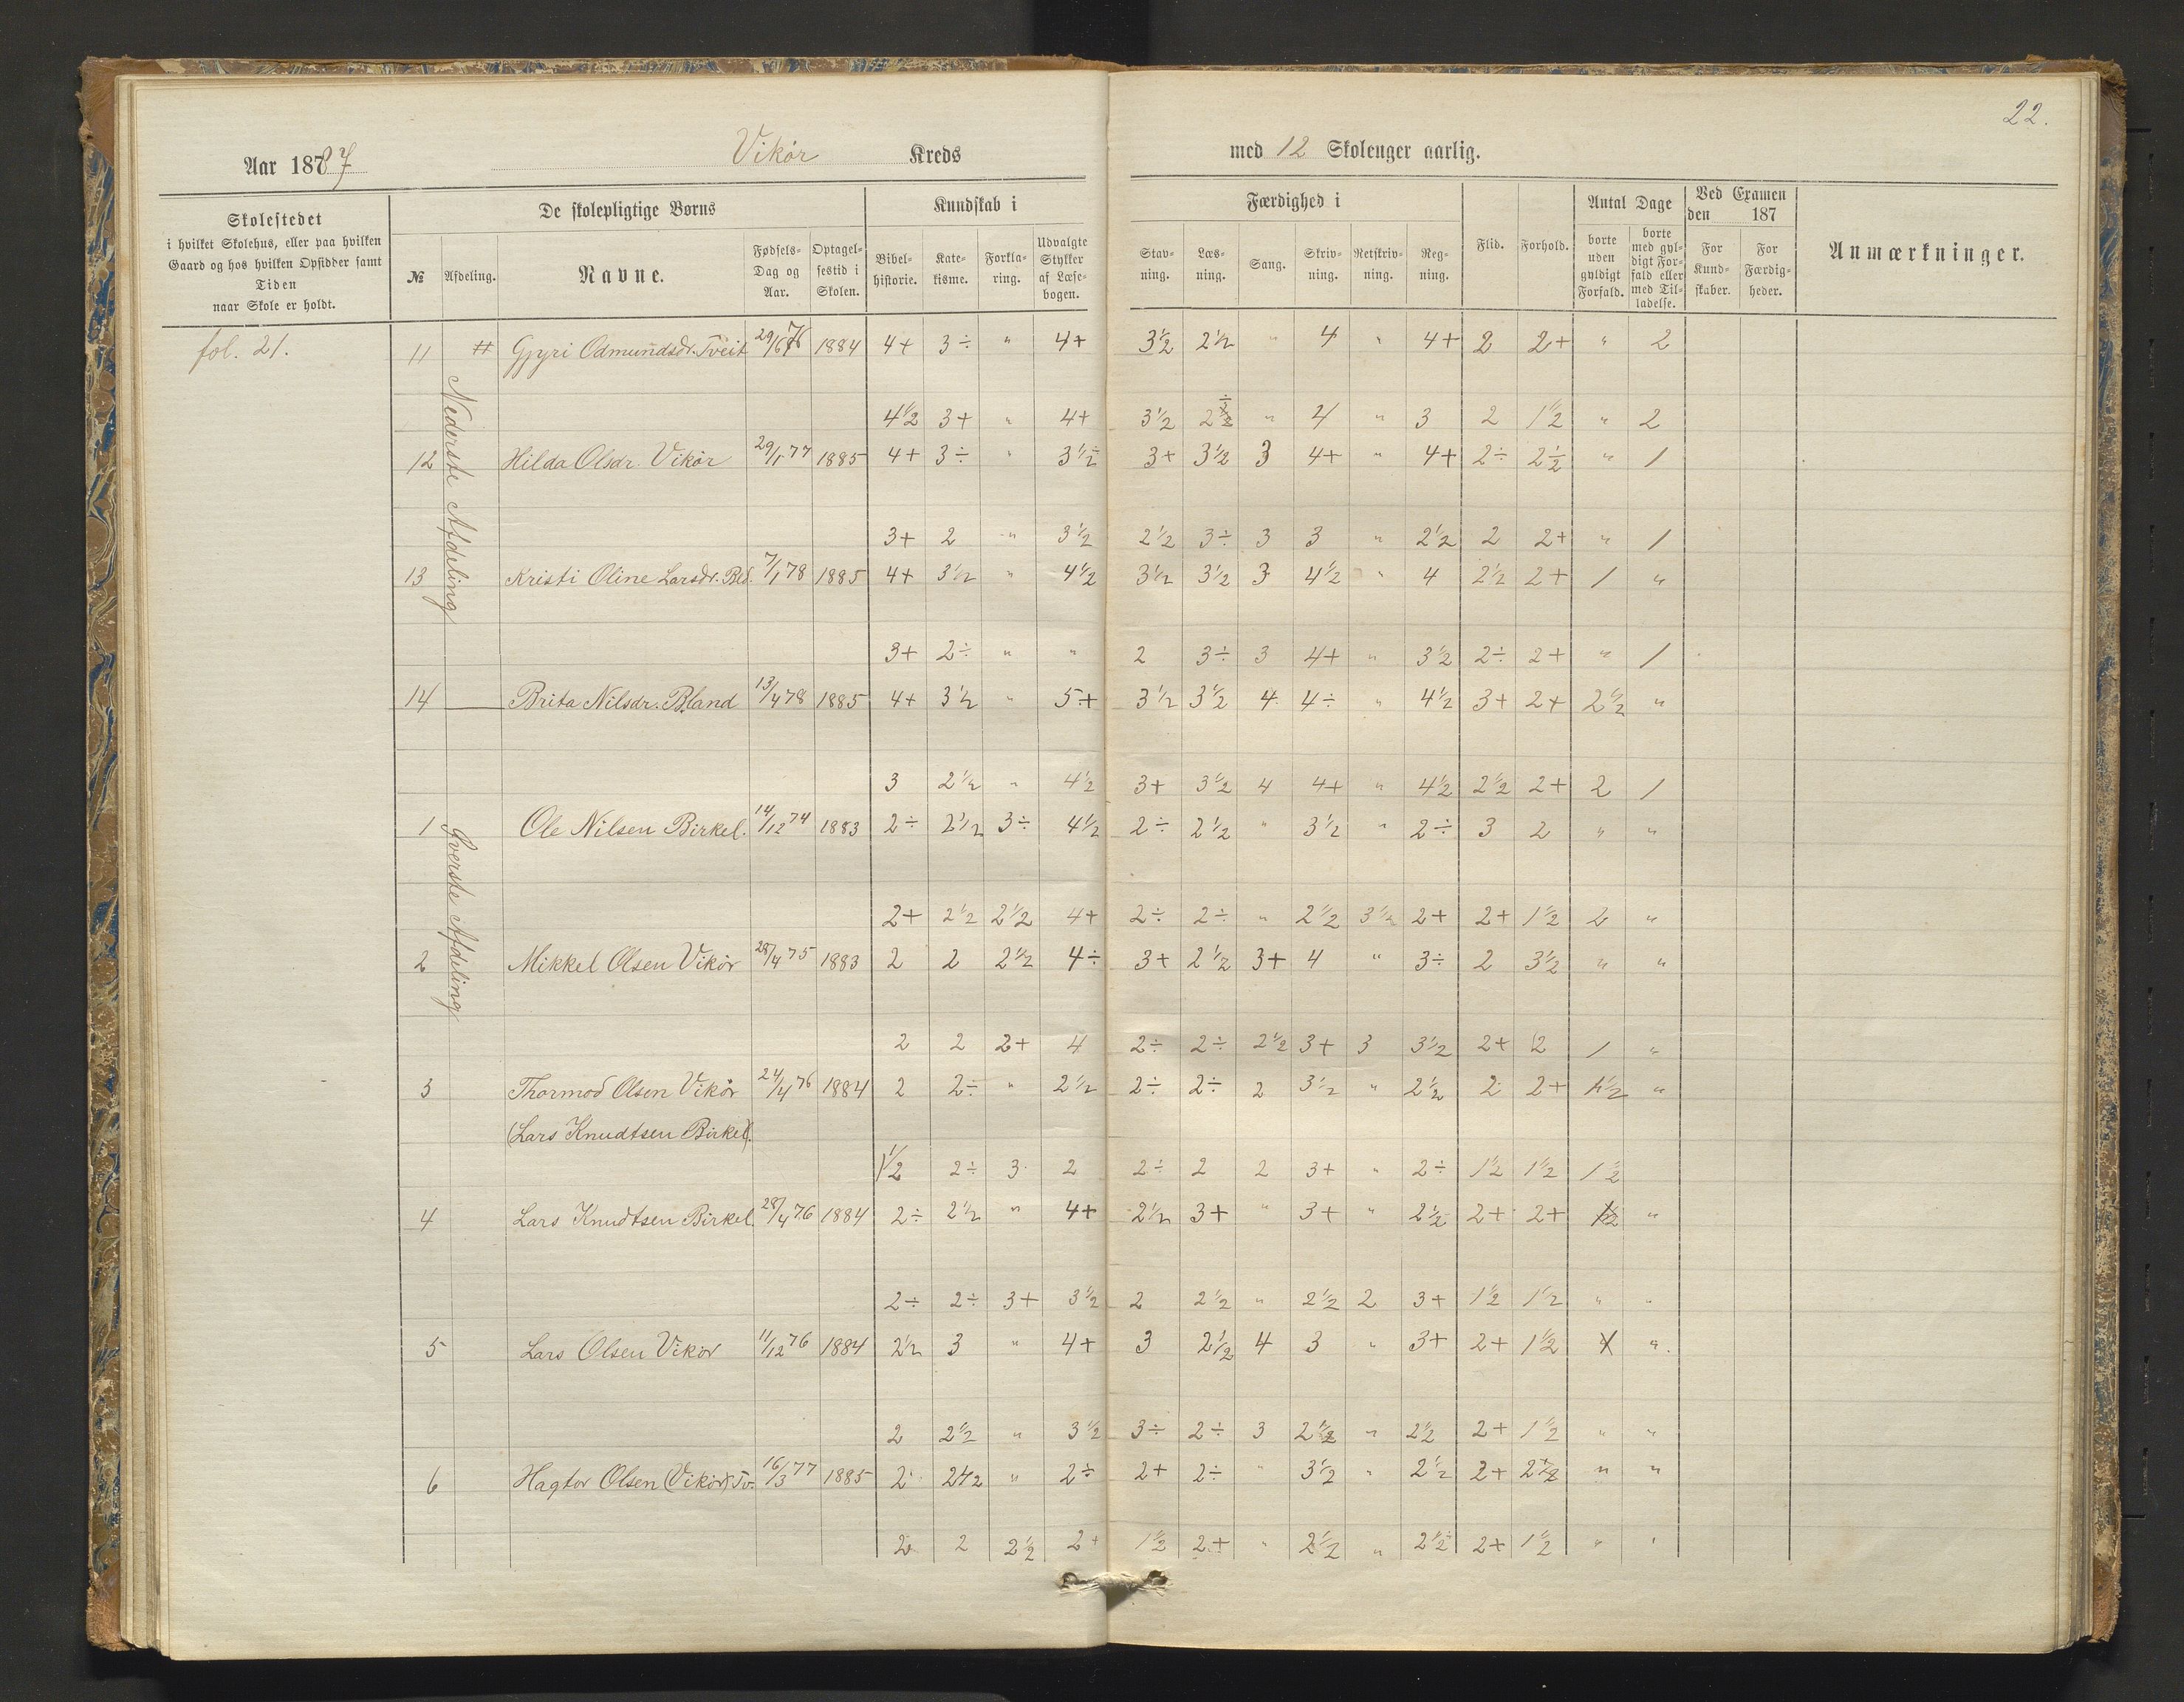 22.
Aar 1887 Vikör Kreds med 12 Skoleuger aarlig.
Skolestedet i hvilket Skolehus, eller paa hvilken Gaard og hos hvilken Opsidder samt Tiden naar Skole er holdt.
De skolepligtige Børns
№ Afdeling. Navne. Fødsels-Dag og Aar. Optagelsestid i Skolen.
Kundskab i
Bibelhistorie. Katekisme. Forklaring. Udvalgte Stykker af Læsebogen.
Færdighed i
Stavning. Læsning. Sang. Skrivning. Retskrivning. Regning.
Flid. Forhold.
Antal Dage
borte uden gyldigt Forfald. borte med gyldigt Forfald eller med Tilladelse.
Ved Examen den 187
For Kundskaber. For Færdigheder.
Anmærkninger.
fol. 21.
Nederste Afdeling
11 # Gyri Odmundsdr. Tveit 29/6 76 1884 4+ 3÷ " 4+ 3½ 2½ " 4 " 4+ 2 2+ " 2
4½ 3+ " 4+ 3½ 2 " 4 " 3 2 1½ " 2
12 Hilda Olsdr. Vikör 29/1 77 1885 4+ 3÷ " 3½ 3+ 3½ 3 4+ " 4+ 2÷ 2½ " 1
3+ 2 " 3½ 2½ 3÷ 3 3 " 2½ 2 2+ " 1
13 Kristi Oline Larsdr. Bld. 7/1 78 1885 4+ 3½ " 4½ 3½ 3½ 3 4½ " 4 2½ 2+ 1 "
3+ 2÷ " " 2 3÷ 3 4+ " 3½ 2÷ 2+ " 1
14 Brita Nilsdr. Bland 13/4 78 1885 4+ 3½ " 5+ 3½ 3½ 4 4÷ " 4½ 3+ 2+ 2½ "
3 2½ " 4½ 3+ 3½ 4 4+ " 4½ 2½ 2+ 2 1
Øverste Afdeling
1 Ole Nilsen Birkel. 14/12 74 1883 2÷ 2½ 3÷ 4½ 2÷ 2½ " 3½ " 2÷ 3 2 " "
2+ 2½ 2½ 4+ 2÷ 2÷ " 2½ 3½ 2+ 2+ 1½ 2 "
2 Mikkel Olsen Vikör 28/4 75 1883 2 2 2½ 4÷ 3+ 2½ 3+ 4 " 3÷ 2 3½ " "
2 2 2+ 4 2÷ 2÷ 2½ 3+ 3 3½ 2+ 2 1 "
3 Thormod Olsen Vikör 24/4 76 1884 2 2÷ " 2½ 2÷ 2÷ 2 3½ " 2½ 2 2+ "
(Lars Knudtsen Birkel).
1½ 2÷ 3 2 2÷ 2 2 3+ " 2÷ 1½ 1½ 1½
4 Lars Knudtsen Birkel. 28/4 76 1884 2÷ 2½ " 4+ 2½ 3+ " 3+ " 2½ 2+ 2+ "
2÷ 2÷ 3+ 3½ 2 2½ " 2½ 2 3+ 1½ 1½ " "
5 Lars Olsen Vikör 11/12 76 1884 2½ 3 " 4+ 3 2½ 4 3 " 3+ 2+ 1½ "
2 2½ " 3½ 3÷ 2÷ 3 2½ " 2½ 2+ 1½ " "
6 Hagtor Olsen (Vikör) Tv. 16/3 77 1885 2 2½ " 2÷ 2+ 2÷ " 3½ " 2½ 2+ 2½ " "
2 2 2½ 2+ 1½ 2+ " 2½ " 2½ 2+ 1½ " "